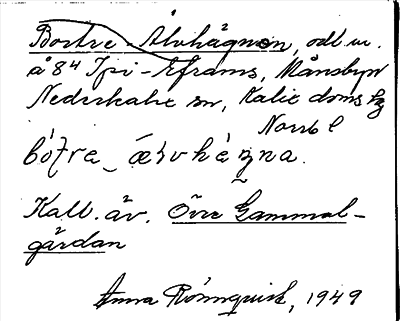 Bortre-Älvhägnen, odl. m.
å 8⁴ Ipi-Eframs, Månsbyn
Nederkalix sn, Kalix doms hg
Norrb l
Kall. äv. Övre Gammal-
gårdan
Anna Rönnquist, 1949